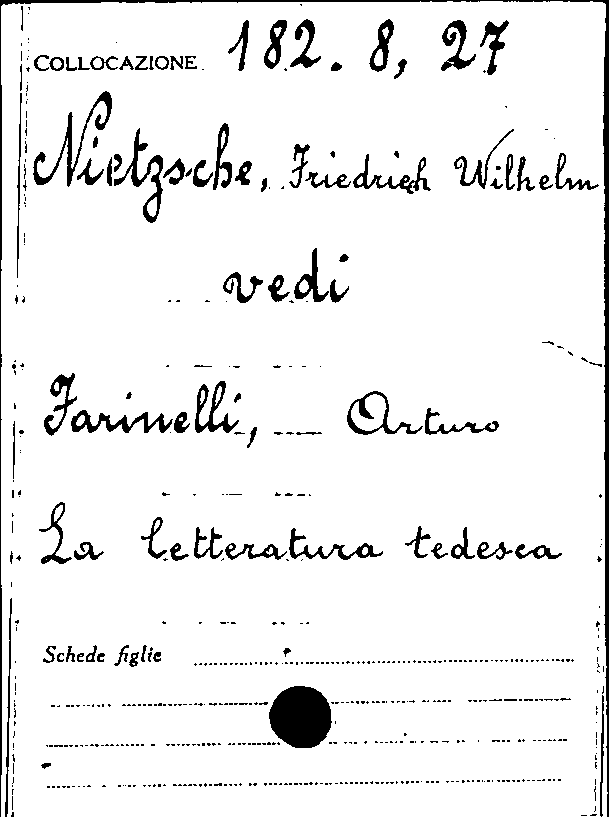 COLLOCAZIONE 182. 8, 27
Nietzsche, Friedrich Wilhelm
vedi
Farinelli, Arturo
La letteratura tedesca
Schede figlie